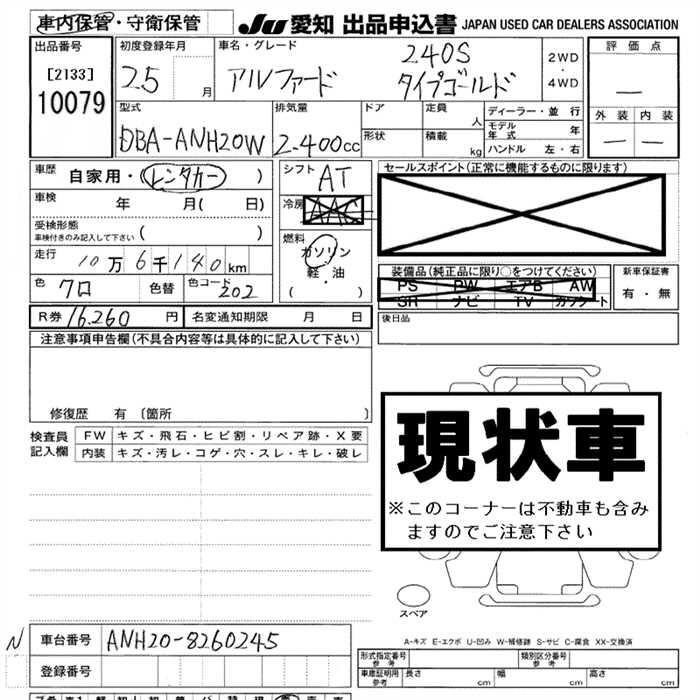 車内保管・守衛保管 JU 愛知 出品申込書 JAPAN USED CAR DEALERS ASSOCIATION
出品番号 初度登録年月 車名・グレード 240S 2WD 評価点
[2133] 25 月 アルファード タイプゴールド ・ 4WD —
10079 型式 排気量 ドア 定員 人 ディーラー・並行 外装 内装
DBA-ANH20W 2-400cc 形状 積載 kg モデル年式 年 — —
ハンドル 左・右
車歴 自家用・(レンタカー ) シフト AT セールスポイント(正常に機能するものに限ります)
車検 年 月( 日) 冷房 AAC
受検形態 車検付きのみ記入して下さい ( ) 燃料 ガソリン
走行 10万6千140km 軽・油 装備品(純正品に限り○をつけてください) 新車保証書
色 クロ 色替 色コード 202 ( ) PS PW エアB AW 有・無
SH ナビ TV カワシート
R券 16,260 円 名変通知期限 月 日 後日品
注意事項申告欄(不具合内容等は具体的に記入して下さい)
現状車
修復歴 有 〔箇所 〕
検査員 FW キズ・飛石・ヒビ割・リペア跡・X要
記入欄 内装 キズ・汚レ・コゲ・穴・スレ・キレ・破レ
※このコーナーは不動車も含み
ますのでご注意下さい
スペア
N 車台番号 ANH20-8260245 A-キズ E-エクボ U-凹み W-補修跡 S-サビ C-腐食 XX-交換済
登録番号 形式指定番号 参考 類別区分番号 参考
車庫証明用 参考 長さ cm 幅 cm 高さ cm